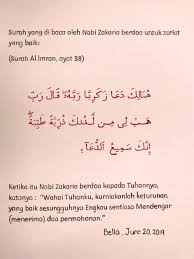 Surah yang di baca oleh Nabi Zakaria berdoa untuk zuriat
yang baik:
(Surah Al Imran, ayat 38)
هُنَالِكَ دَعَا زَكَرِيَّا رَبَّهُۥ قَالَ رَبِّ
هَبْ لِى مِن لَّدُنكَ ذُرِّيَّةً طَيِّبَةً
إِنَّكَ سَمِيعُ ٱلدُّعَآءِ
Ketika itu Nabi Zakaria berdoa kepada Tuhannya,
katanya : "Wahai Tuhanku, kurniakanlah keturunan
yang baik sesungguhnya Engkau sentiasa Mendengar
(menerima) doa permohonan."
Bella, June 20, 2019